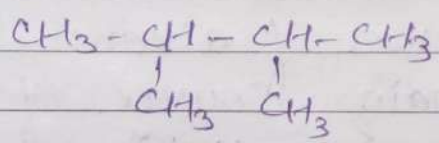 CH3 - CH - CH - CH3
| |
CH3 CH3